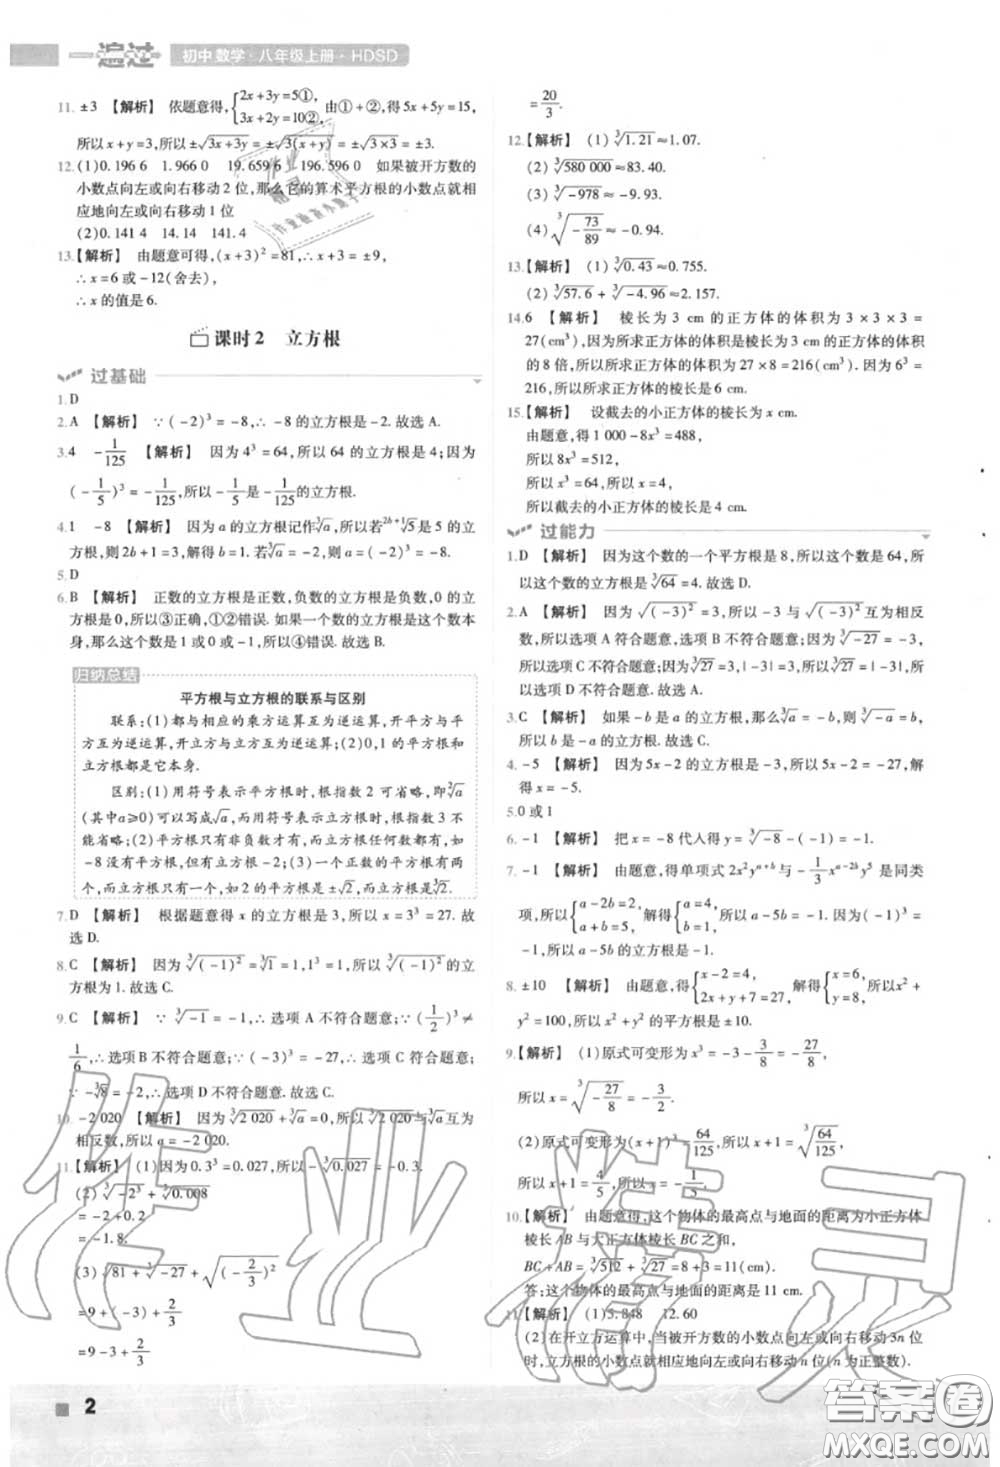 一遍过 初中数学·八年级上册·HDSD
11. ±3 【解析】 依题意得,{2x+3y=5①, 3x+2y=10②, 由①+②,得5x+5y=15,
所以x+y=3,所以±√(3x+3y)=±√(3(x+y))=±√(3×3)=±3.
12. (1)0.196 6 1.966 0 19.659 6 196.596 0 如果被开方数的
小数点向左或向右移动2位,那么它的算术平方根的小数点就相
应地向左或向右移动1位
(2)0.141 4 14.14 141.4
13.【解析】 由题意可得,(x+3)²=81,∴x+3=±9,
∴x=6或-12(舍去),
∴x的值是6.
课时2 立方根
过基础
1. D
2. A 【解析】 ∵(-2)³=-8,∴-8的立方根是-2.故选A.
3. 4 -1/125 【解析】 因为4³=64,所以64的立方根是4;因为
(-1/5)³=-1/125,所以-1/5是-1/125的立方根.
4. 1 -8 【解析】 因为a的立方根记作∛a,所以若^(2b+1)√5是5的立
方根,则2b+1=3,解得b=1.若∛a=-2,则a=(-2)³=-8.
5. D
6. B 【解析】 正数的立方根是正数,负数的立方根是负数,0的立
方根是0,所以③正确,①②错误.如果一个数的立方根是这个数本
身,那么这个数是1或0或-1,所以④错误.故选B.
归纳总结
平方根与立方根的联系与区别
联系:(1)都与相应的乘方运算互为逆运算,开平方与平
方互为逆运算,开立方与立方互为逆运算;(2)0,1的平方根和
立方根都是它本身.
区别:(1)用符号表示平方根时,根指数2可省略,即²√a
(其中a≥0)可以写成√a,而用符号表示立方根时,根指数3不
能省略;(2)平方根只有非负数才有,而立方根任何数都有,如
-8没有平方根,但有立方根-2;(3)一个正数的平方根有两
个,而立方根只有一个,如2的平方根是±√2,而立方根是∛2.
7. D 【解析】 根据题意得x的立方根是3,所以x=3³=27.故
选D.
8. C 【解析】 因为∛((-1)²)=∛1=1,1³=1,所以∛((-1)²)的立
方根为1.故选C.
9. C 【解析】 ∵∛-1=-1,∴选项A不符合题意;∵(1/2)³≠
1/6,∴选项B不符合题意;∵(-3)³=-27,∴选项C符合题意;
∵-∛8=-2,∴选项D不符合题意.故选C.
10. -2 020 【解析】 因为∛2 020+∛a=0,所以∛2 020与∛a互为
相反数,所以a=-2 020.
11.【解析】 (1)因为0.3³=0.027,所以-∛0.027=-0.3.
(2)∛-2³+∛0.008
=-2+0.2
=-1.8.
(3)√81+∛-27+√((-2/3)²)
=9+(-3)+2/3
=9-3+2/3
=20/3.
12.【解析】 (1)∛1.21≈1.07.
(2)∛580 000≈83.40.
(3)∛-978≈-9.93.
(4)∛(-73/89)≈-0.94.
13.【解析】 (1)∛0.43≈0.755.
(2)∛57.6+∛-4.96≈2.157.
14. 6 【解析】 棱长为3 cm的正方体的体积为3×3×3=
27(cm³),因为所求正方体的体积是棱长为3 cm的正方体的体积
的8倍,所以所求正方体的体积为27×8=216(cm³).因为6³=
216,所以所求正方体的棱长是6 cm.
15.【解析】 设截去的小正方体的棱长为x cm.
由题意,得1 000-8x³=488,
所以8x³=512,
所以x³=64,所以x=4,
所以截去的小正方体的棱长是4 cm.
过能力
1. D 【解析】 因为这个数的一个平方根是8,所以这个数是64,所
以这个数的立方根是∛64=4.故选D.
2. A 【解析】 因为√((-3)²)=3,所以-3与√((-3)²)互为相反
数,所以选项A符合题意;因为∛-27=-3,
所以选项C不符合题意;因为∛27=3,所以∛27=|-3|,所以选
项D不符合题意.故选A.
3. C 【解析】 如果-b是a的立方根,那么∛a=-b,则∛-a=b,
所以b是-a的立方根.故选C.
4. -5 【解析】 因为5x-2的立方根是-3,所以5x-2=-27,解
得x=-5.
5. 0或1
6. -1 【解析】 把x=-8代入得y=∛-8-(-1)=-1.
7. -1 【解析】 根据题意得单项式2x²y^(a+b)与-1/3x^(a-2b)y⁵是同类
项,所以{a-2b=2, a+b=5, 解得{a=4, b=1, 所以a-5b=-1.因为(-1)³=
-1,所以a-5b的立方根是-1.
8. ±10 【解析】 由题意,得{x-2=4, 2x+y+7=27, 解得{x=6, y=8, 所以x²+
y²=100,所以x²+y²的平方根是±10.
9.【解析】 (1)原式可变形为x³=-3-3/8=-27/8,
所以x=∛(-27/8)=-3/2.
(2)原式可变形为(x+1)³=64/125,所以x+1=∛(64/125),
所以x+1=4/5,所以x=-1/5.
10.【解析】 由题意得,这个物体的最高点与地面的距离为小正方体
棱长AB与大正方体棱长BC之和,
BC+AB=∛512+∛27=8+3=11(cm).
答:这个物体的最高点与地面的距离是11 cm.
11.【解析】 (1)5.848 12.60
(2)在开立方运算中,当被开方数的小数点向左或向右移动3n位
时,立方根的小数点就相应地向左或向右移动n位(n为正整数).
2
作业精灵
答案圈
MXQE.COM